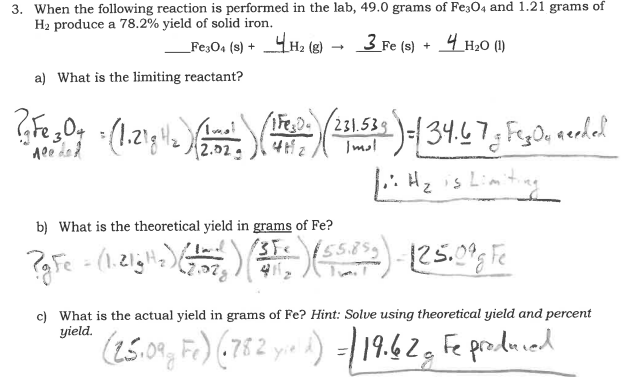 3. When the following reaction is performed in the lab, 49.0 grams of Fe3O4 and 1.21 grams of
H2 produce a 78.2% yield of solid iron.
___Fe3O4 (s) + 4 H2 (g) → 3 Fe (s) + 4 H2O (l)
a) What is the limiting reactant?
?g Fe3O4 needed = (1.21g H2)(1mol/2.02g)(1Fe3O4/4H2)(231.53g/1mol) = 34.67g Fe3O4 needed
∴ H2 is Limiting
b) What is the theoretical yield in grams of Fe?
?g Fe = (1.21g H2)(1mol/2.02g)(3Fe/4H2)(55.85g/1mol) = 25.09g Fe
c) What is the actual yield in grams of Fe? Hint: Solve using theoretical yield and percent
yield.
(25.09g Fe)(.782 yield) = 19.62g Fe produced